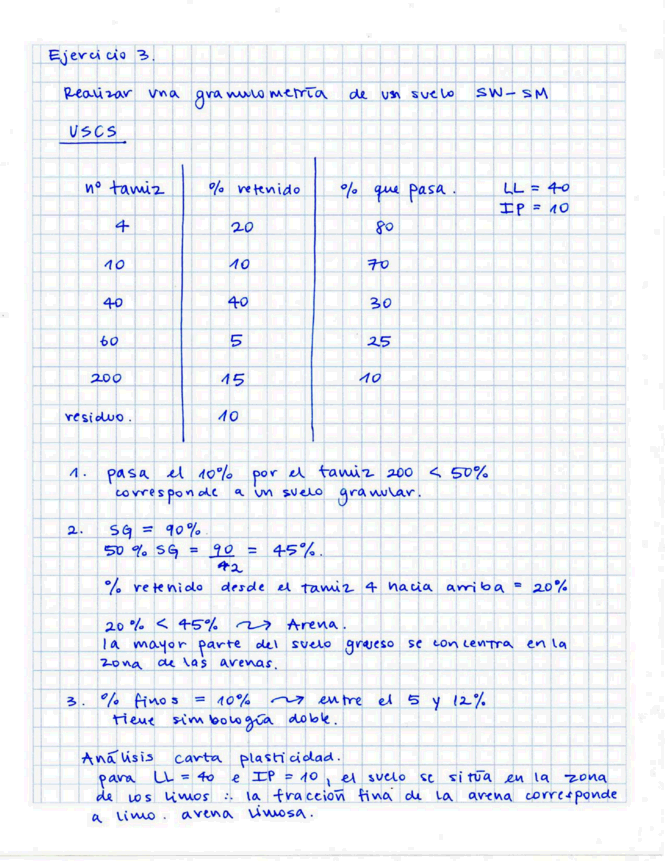 Ejercicio 3.
Realizar una granulometría de un suelo SW-SM
USCS
nº tamiz % retenido % que pasa. LL = 40
IP = 10
4 20 80
10 10 70
40 40 30
60 5 25
200 15 10
residuo. 10
1. pasa el 10% por el tamiz 200 < 50%
corresponde a un suelo granular.
2. SG = 90%
50 % SG = 90/42 = 45%.
% retenido desde el tamiz 4 hacia arriba = 20%
20% < 45% ~> Arena.
la mayor parte del suelo grueso se concentra en la
zona de las arenas.
3. % finos = 10% ~> entre el 5 y 12%
tiene simbología doble.
Análisis carta plasticidad.
para LL = 40 e IP = 10, el suelo se sitúa en la zona
de los limos ∴ la fracción fina de la arena corresponde
a limo. arena limosa.